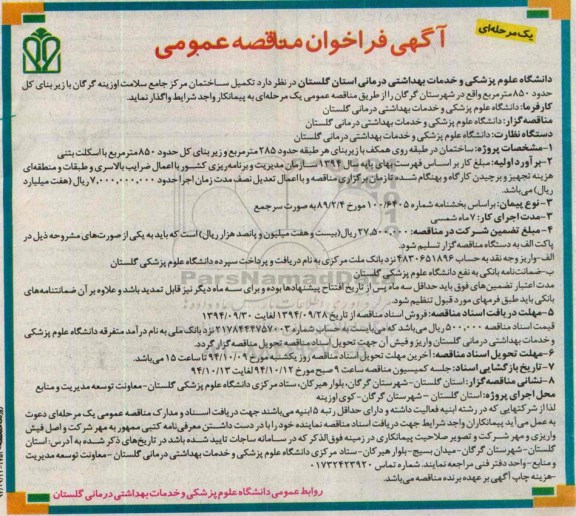 یک مرحله‌ای
آگهی فراخوان مناقصه عمومی
دانشگاه علوم پزشکی و خدمات بهداشتی درمانی استان گلستان در نظر دارد تکمیل ساختمان مرکز جامع سلامت اوزینه گرگان با زیر بنای کل
حدود ۸۵۰ مترمربع واقع در شهرستان گرگان را از طریق مناقصه عمومی یک مرحله‌ای به پیمانکار واجد شرایط واگذار نماید.
کارفرما: دانشگاه علوم پزشکی و خدمات بهداشتی درمانی گلستان
مناقصه گزار: دانشگاه علوم پزشکی و خدمات بهداشتی درمانی گلستان
دستگاه نظارت: دانشگاه علوم پزشکی و خدمات بهداشتی درمانی گلستان
۱-مشخصات پروژه: ساختمان در طبقه روی همکف با زیربنای هر طبقه حدود ۲۸۵ مترمربع و زیر بنای کل حدود ۸۵۰ مترمربع با اسکلت بتنی
۲-برآورد اولیه: مبلغ کار بر اساس فهرست بهای پایه سال ۱۳۹۴ سازمان مدیریت و برنامه‌ریزی کشور با اعمال ضرایب بالاسری و طبقات و منطقه‌ای
هزینه تجهیز و برچیدن کارگاه و بهنگام شده تا زمان برگزاری مناقصه و با اعمال تعدیل نصف مدت زمان اجرا حدود ۷,۰۰۰,۰۰۰,۰۰۰ (هفت میلیارد
ریال) می‌باشد.
۳-نوع پیمان: براساس بخشنامه شماره ۱۰۰/۶۴۰۵ مورخ ۸۹/۲/۴ به صورت سرجمع
۳-مدت اجرای کار: ۷ ماه شمسی
۴-مبلغ تضمین شرکت در مناقصه: ۲۷,۵۰۰,۰۰۰ ریال(بیست و هفت میلیون و پانصد هزار ریال) است که باید به یکی از صورت‌های مشروحه ذیل در
پاکت الف به دستگاه مناقصه گزار تسلیم شود.
الف-واریز وجه نقد به حساب ۴۸۳۰۶۵۱۸۹۶ نزد بانک ملت مرکزی به نام دریافت و پرداخت سپرده دانشگاه علوم پزشکی گلستان
ب-ضمانت‌نامه بانکی به نفع دانشگاه علوم پزشکی گلستان
مدت اعتبار تضمین های فوق باید حداقل سه ماه پس از تاریخ افتتاح پیشنهادها بوده و برای سه ماه دیگر نیز قابل تمدید باشد و علاوه بر آن ضمانتنامه‌های
بانکی باید طبق فرمهای مورد قبول تنظیم شود.
۵-مهلت دریافت اسناد مناقصه: فروش اسناد مناقصه از تاریخ ۱۳۹۴/۰۹/۲۸ لغایت ۱۳۹۴/۰۹/۳۰
قیمت اسناد مناقصه ۵۰۰,۰۰۰ ریال می‌باشد که می‌بایست به حساب شماره ۲۱۷۸۴۴۴۷۵۷۰۰۳ نزد بانک ملی به نام درآمد متفرقه دانشگاه علوم پزشکی
و خدمات بهداشتی درمانی گلستان واریز و فیش آن جهت تحویل اسناد مناقصه تحویل مناقصه گزار گردد.
۶-مهلت تحویل اسناد مناقصه: آخرین مهلت تحویل اسناد مناقصه روز یکشنبه مورخ ۹۴/۱۰/۰۹ تا ساعت ۱۵ می‌باشد.
۷-تاریخ بازگشایی اسناد: جلسه کمیسیون مناقصه ساعت ۹ صبح مورخ ۹۴/۱۰/۱۲ لغایت ۹۴/۱۰/۱۳
۸-نشانی مناقصه گزار: استان گلستان-شهرستان گرگان-بلوار هیرکان، ستاد مرکزی دانشگاه علوم پزشکی گلستان-معاونت توسعه مدیریت و منابع
محل اجرای پروژه: استان گلستان-شهرستان گرگان-کوی اوزینه
لذا از شرکتهایی که در رشته ابنیه فعالیت داشته و دارای حداقل رتبه ۵ ابنیه می‌باشند جهت دریافت اسناد و مدارک مناقصه عمومی یک مرحله‌ای دعوت
به عمل می‌آید پیمانکاران واجد شرایط جهت دریافت اسناد مناقصه نماینده خود را با در دست داشتن معرفی‌نامه کتبی ممهور به مهر شرکت و اصل فیش
واریزی و مهر شرکت و تصویر صلاحیت پیمانکاری در زمینه فوق الذکر که در سامانه ساجات تایید شده باشد در تاریخ‌های ذکر شده به آدرس: استان
گلستان-شهرستان گرگان-میدان بسیج-بلوار هیرکان-ستاد مرکزی دانشگاه علوم پزشکی و خدمات بهداشتی درمانی گلستان-معاونت توسعه مدیریت
و منابع-واحد دفتر فنی مراجعه نمایند. شماره تماس ۰۱۷۳۲۴۲۳۹۲۰
-هزینه چاپ آگهی بر عهده برنده مناقصه می‌باشد.
روابط عمومی دانشگاه علوم پزشکی و خدمات بهداشتی درمانی گلستان
ParsNamadData